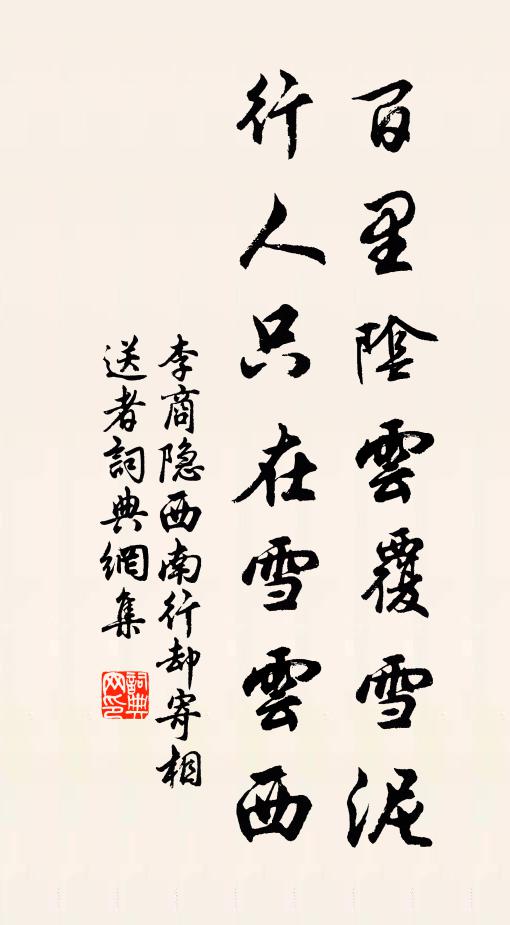 百里陰雲覆雪泥
行人只在雪雲西
李商隐西南行却寄相
送者詞典網集
詞典网印